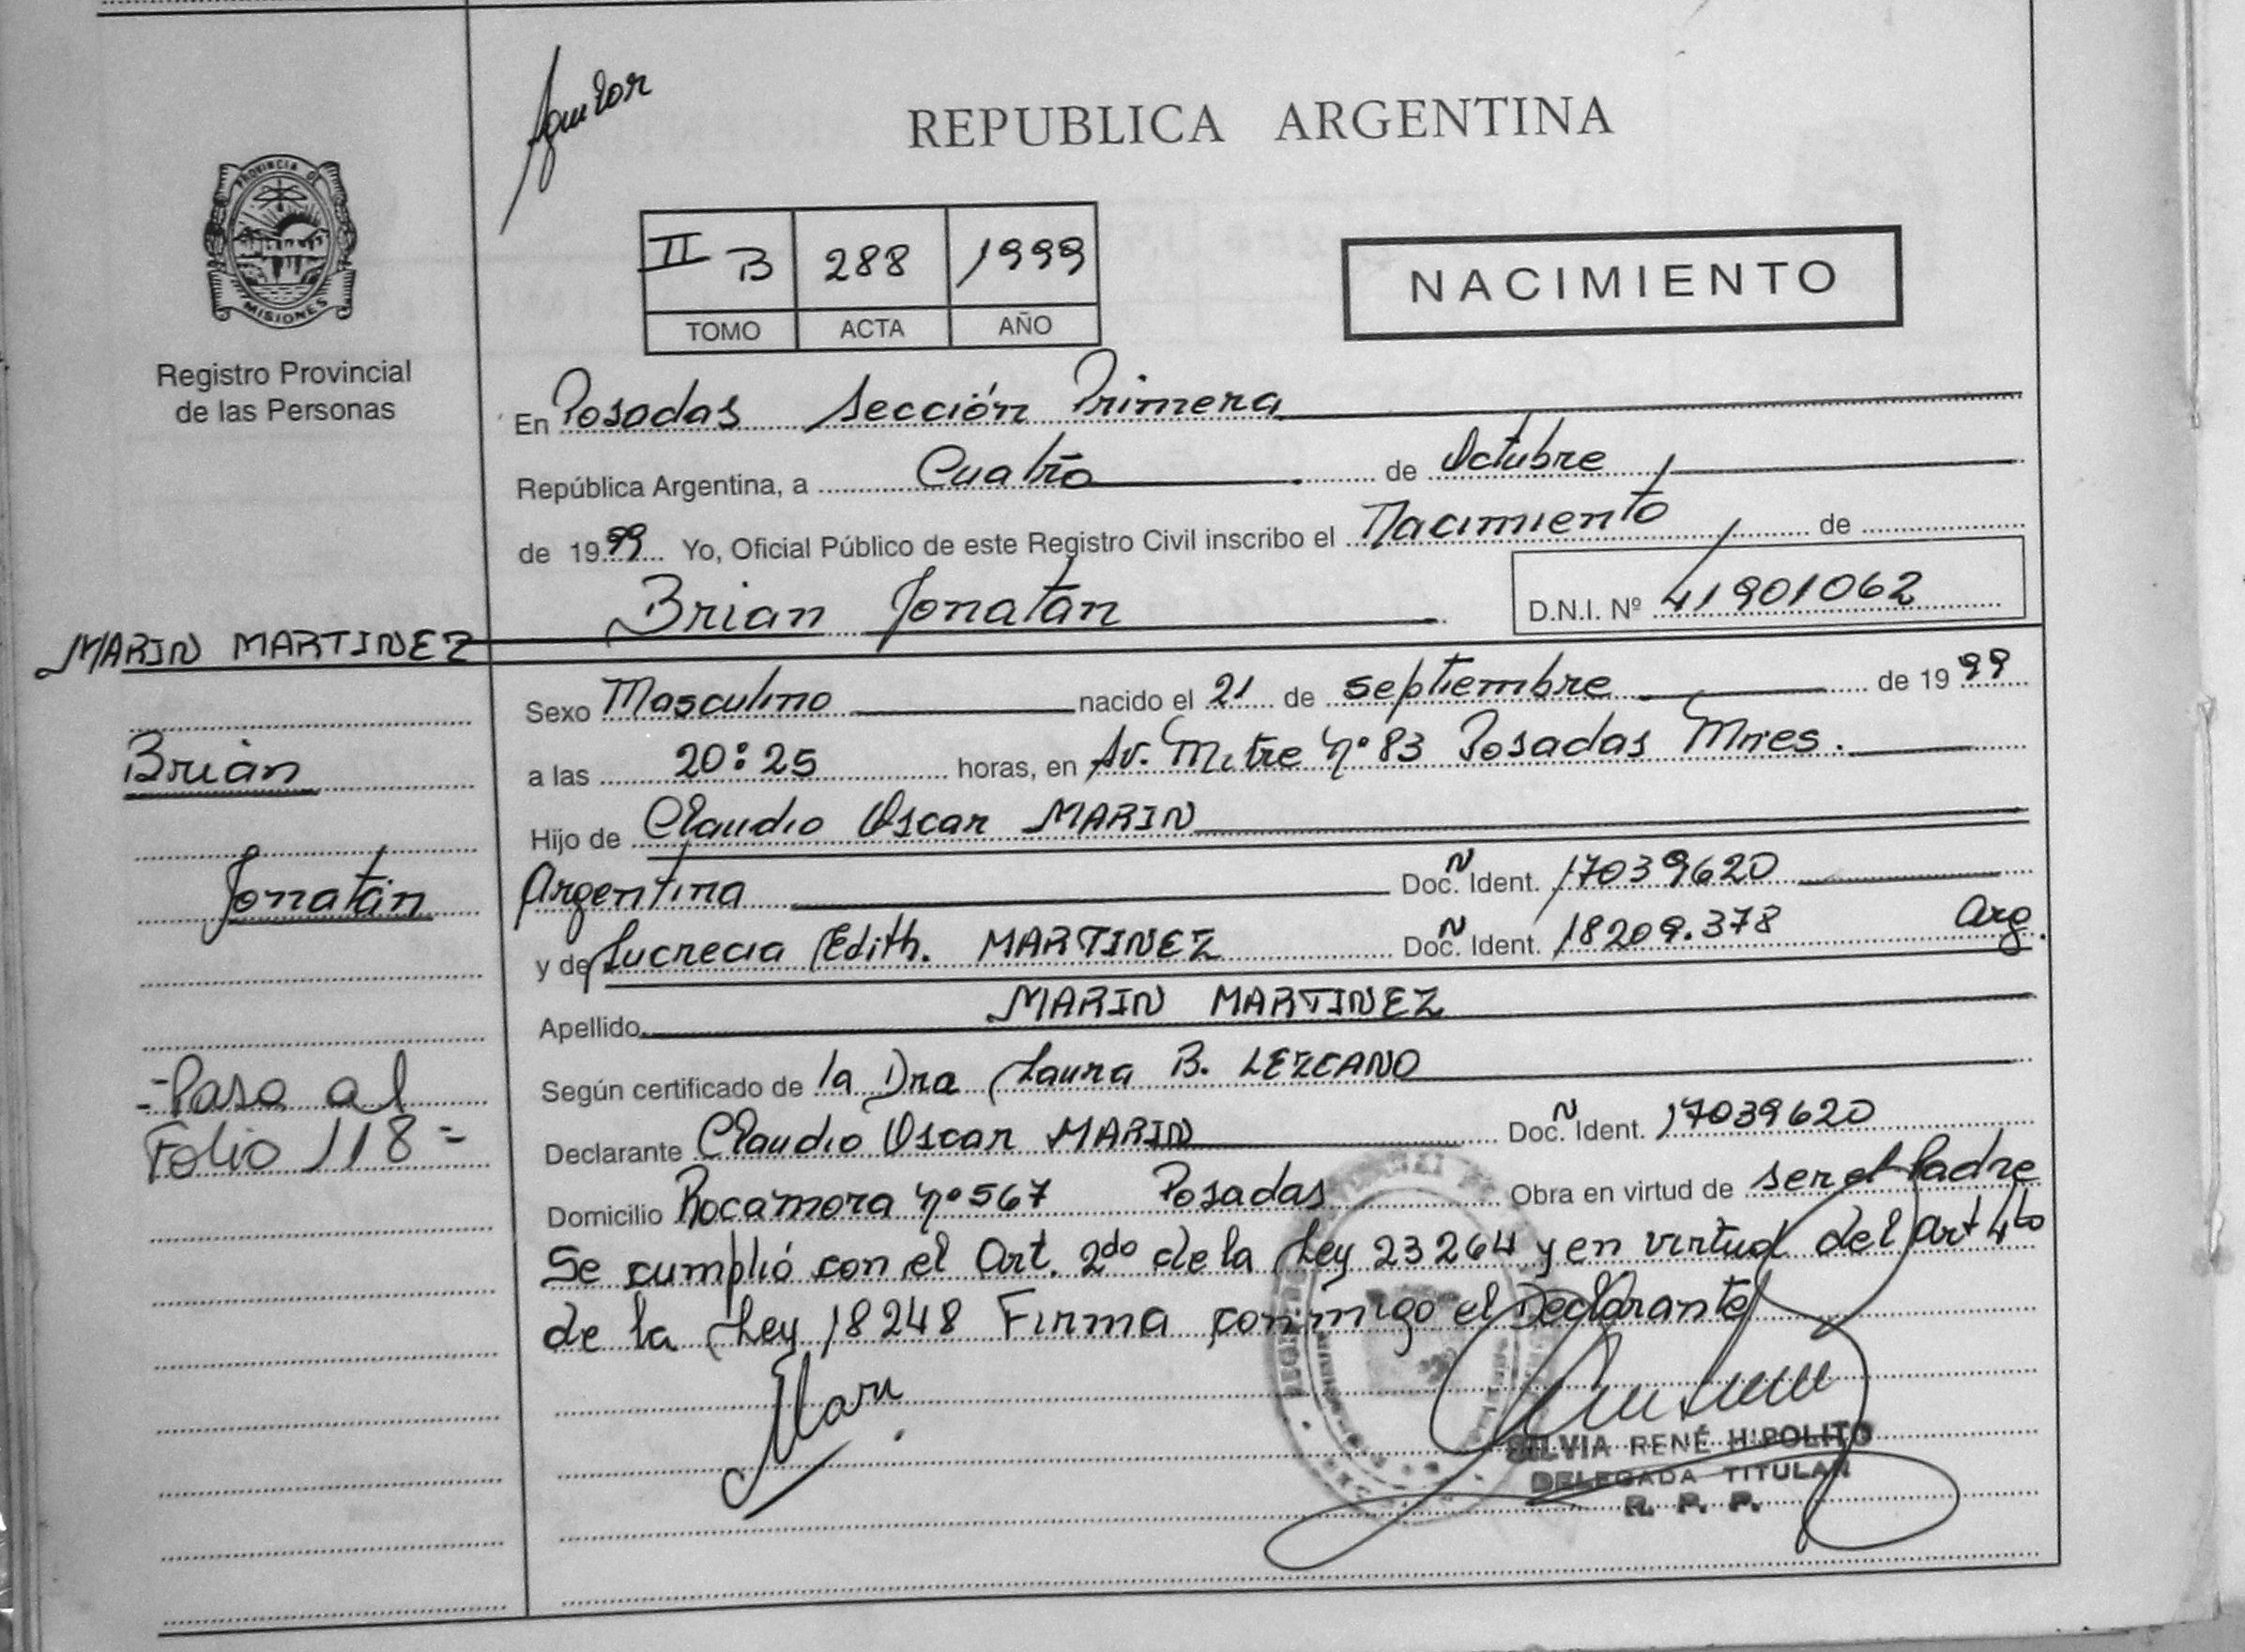 REPUBLICA ARGENTINA
PROVINCIA DE
MISIONES
Registro Provincial
de las Personas
II B 288 1999
TOMO ACTA AÑO
NACIMIENTO
En Posadas Sección Primera
República Argentina, a Cuatro de Octubre
de 1999 Yo, Oficial Público de este Registro Civil inscribo el Nacimiento de
Brian Jonatán D.N.I. Nº 41901062
MARIN MARTINEZ
Brian
Jonatán
Sexo Masculino nacido el 21 de septiembre de 1999
a las 20:25 horas, en Av. Mitre Nº 83 Posadas Mnes.
Hijo de Claudio Oscar MARIN
Argentina Doc. N Ident. 17039620
y de Lucrecia Edith. MARTINEZ Doc. N Ident. 18209.378 Arg.
Apellido MARIN MARTINEZ
Según certificado de la Dra Laura B. LEZCANO
-Pasa al
Folio 118=
Declarante Claudio Oscar MARIN Doc. N Ident. 17039620
Domicilio Rocamora Nº 567 Posadas Obra en virtud de ser el Padre
Se cumplió con el Art. 2do de la Ley 23264 y en virtud del Art 4to
de la Ley 18248 Firma conmigo el Declarante
SILVIA RENÉ HIPOLITO
DELEGADA TITULAR
R. P. P.